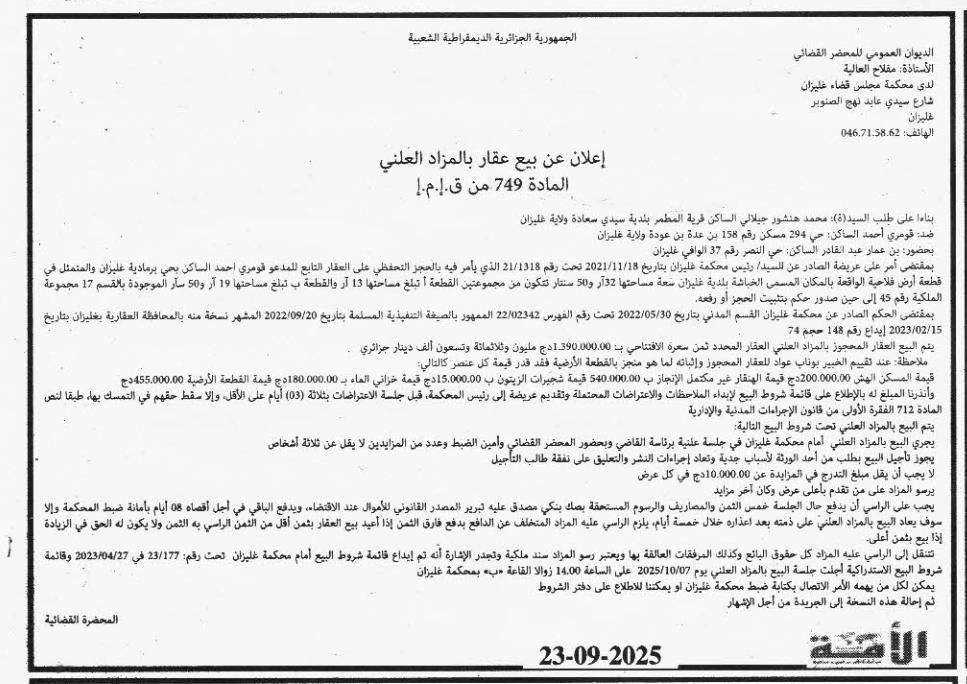 الجمهورية الجزائرية الديمقراطية الشعبية
الديوان العمومي للمحضر القضائي
الأستاذة: مفلاح العالية
لدى محكمة مجلس قضاء غليزان
شارع سيدي عابد نهج الصنوبر
غليزان
الهاتف: 046.71.58.62
إعلان عن بيع عقار بالمزاد العلني
المادة 749 من ق.إ.م.إ
بناءا على طلب السيد(ة): محمد هنشور جيلالي الساكن قرية المطمر بلدية سيدي سعادة ولاية غليزان
ضد: قومري أحمد الساكن: حي 294 مسكن رقم 158 بن عدة بن عودة ولاية غليزان
بحضور: بن عمار عبد القادر الساكن: حي النصر رقم 37 الوافي غليزان
بمقتضى أمر على عريضة الصادر عن السيد/ رئيس محكمة غليزان بتاريخ 2021/11/18 تحت رقم 21/1318 الذي يأمر فيه بالحجز التحفظي على العقار التابع للمدعو قومري احمد الساكن بحي برمادية غليزان والمتمثل في
قطعة أرض فلاحية الواقعة بالمكان المسمى الخباشة بلدية غليزان سعة مساحتها 32آر و50 سنتار تتكون من مجموعتين القطعة أ تبلغ مساحتها 13 آر والقطعة ب تبلغ مساحتها 19 آر و50 سآر الموجودة بالقسم 17 مجموعة
الملكية رقم 45 إلى حين صدور حكم بتثبيت الحجز أو رفعه.
بمقتضى الحكم الصادر عن محكمة غليزان القسم المدني بتاريخ 2022/05/30 تحت رقم الفهرس 22/02342 الممهور بالصيغة التنفيذية المسلمة بتاريخ 2022/09/20 المشهر نسخة منه بالمحافظة العقارية بغليزان بتاريخ
2023/02/15 إيداع رقم 148 حجم 74
يتم البيع العقار المحجوز بالمزاد العلني العقار المحدد ثمن سعرة الافتتاحي بـ: 1.390.000.00دج مليون وثلاثمائة وتسعون ألف دينار جزائري
ملاحظة: عند تقييم الخبير بوناب عواد للعقار المحجوز وإثباته لما هو منجز بالقطعة الأرضية فقد قدر قيمة كل عنصر كالتالي:
قيمة المسكن الهش 200.000.00دج قيمة الهنقار غير مكتمل الإنجاز ب 540.000.00 قيمة شجيرات الزيتون ب 15.000.00دج قيمة خزاني الماء بـ 180.000.00دج قيمة القطعة الأرضية 455.000.00دج
وأنذرنا المبلغ له بالإطلاع على قائمة شروط البيع لإبداء الملاحظات والاعتراضات المحتملة وتقديم عريضة إلى رئيس المحكمة، قبل جلسة الاعتراضات بثلاثة (03) أيام على الأقل، وإلا سقط حقهم في التمسك بها، طبقا لنص
المادة 712 الفقرة الأولى من قانون الإجراءات المدنية والإدارية
يتم البيع بالمزاد العلني تحت شروط البيع التالية:
يجري البيع بالمزاد العلني أمام محكمة غليزان في جلسة علنية برئاسة القاضي وبحضور المحضر القضائي وأمين الضبط وعدد من المزايدين لا يقل عن ثلاثة أشخاص
يجوز تأجيل البيع بطلب من أحد الورثة لأسباب جدية وتعاد إجراءات النشر والتعليق على نفقة طالب التأجيل
لا يجب أن يقل مبلغ التدرج في المزايدة عن 10.000.00دج في كل عرض
يرسو المزاد على من تقدم بأعلى عرض وكان آخر مزايد
يجب على الراسي أن يدفع حال الجلسة خمس الثمن والمصاريف والرسوم المستحقة بصك بنكي مصدق عليه تبرير المصدر القانوني للأموال عند الاقتضاء، ويدفع الباقي في أجل أقصاه 08 أيام بأمانة ضبط المحكمة وإلا
سوف يعاد بالبيع بالمزاد العلني على ذمته بعد اعذاره خلال خمسة أيام، يلزم الراسي عليه المزاد المتخلف عن الدافع بدفع فارق الثمن إذا أعيد بيع العقار بثمن أقل من الثمن الراسي به الثمن ولا يكون له الحق في الزيادة
إذا بيع بثمن أعلى.
تتنقل إلى الراسي عليه المزاد كل حقوق البائع وكذلك المرفقات العالقة بها ويعتبر رسو المزاد سند ملكية وتجدر الإشارة أنه تم إيداع قائمة شروط البيع أمام محكمة غليزان تحت رقم: 23/177 في 2023/04/27 وقائمة
شروط البيع الاستدراكية أجلت جلسة البيع بالمزاد العلني يوم 2025/10/07 على الساعة 14.00 زوالا القاعة «ب» بمحكمة غليزان
يمكن لكل من يهمه الأمر الاتصال بكتابة ضبط محكمة غليزان او يمكننا للاطلاع على دفتر الشروط
ثم إحالة هذه النسخة إلى الجريدة من أجل الإشهار
المحضرة القضائية
الأمة
23-09-2025